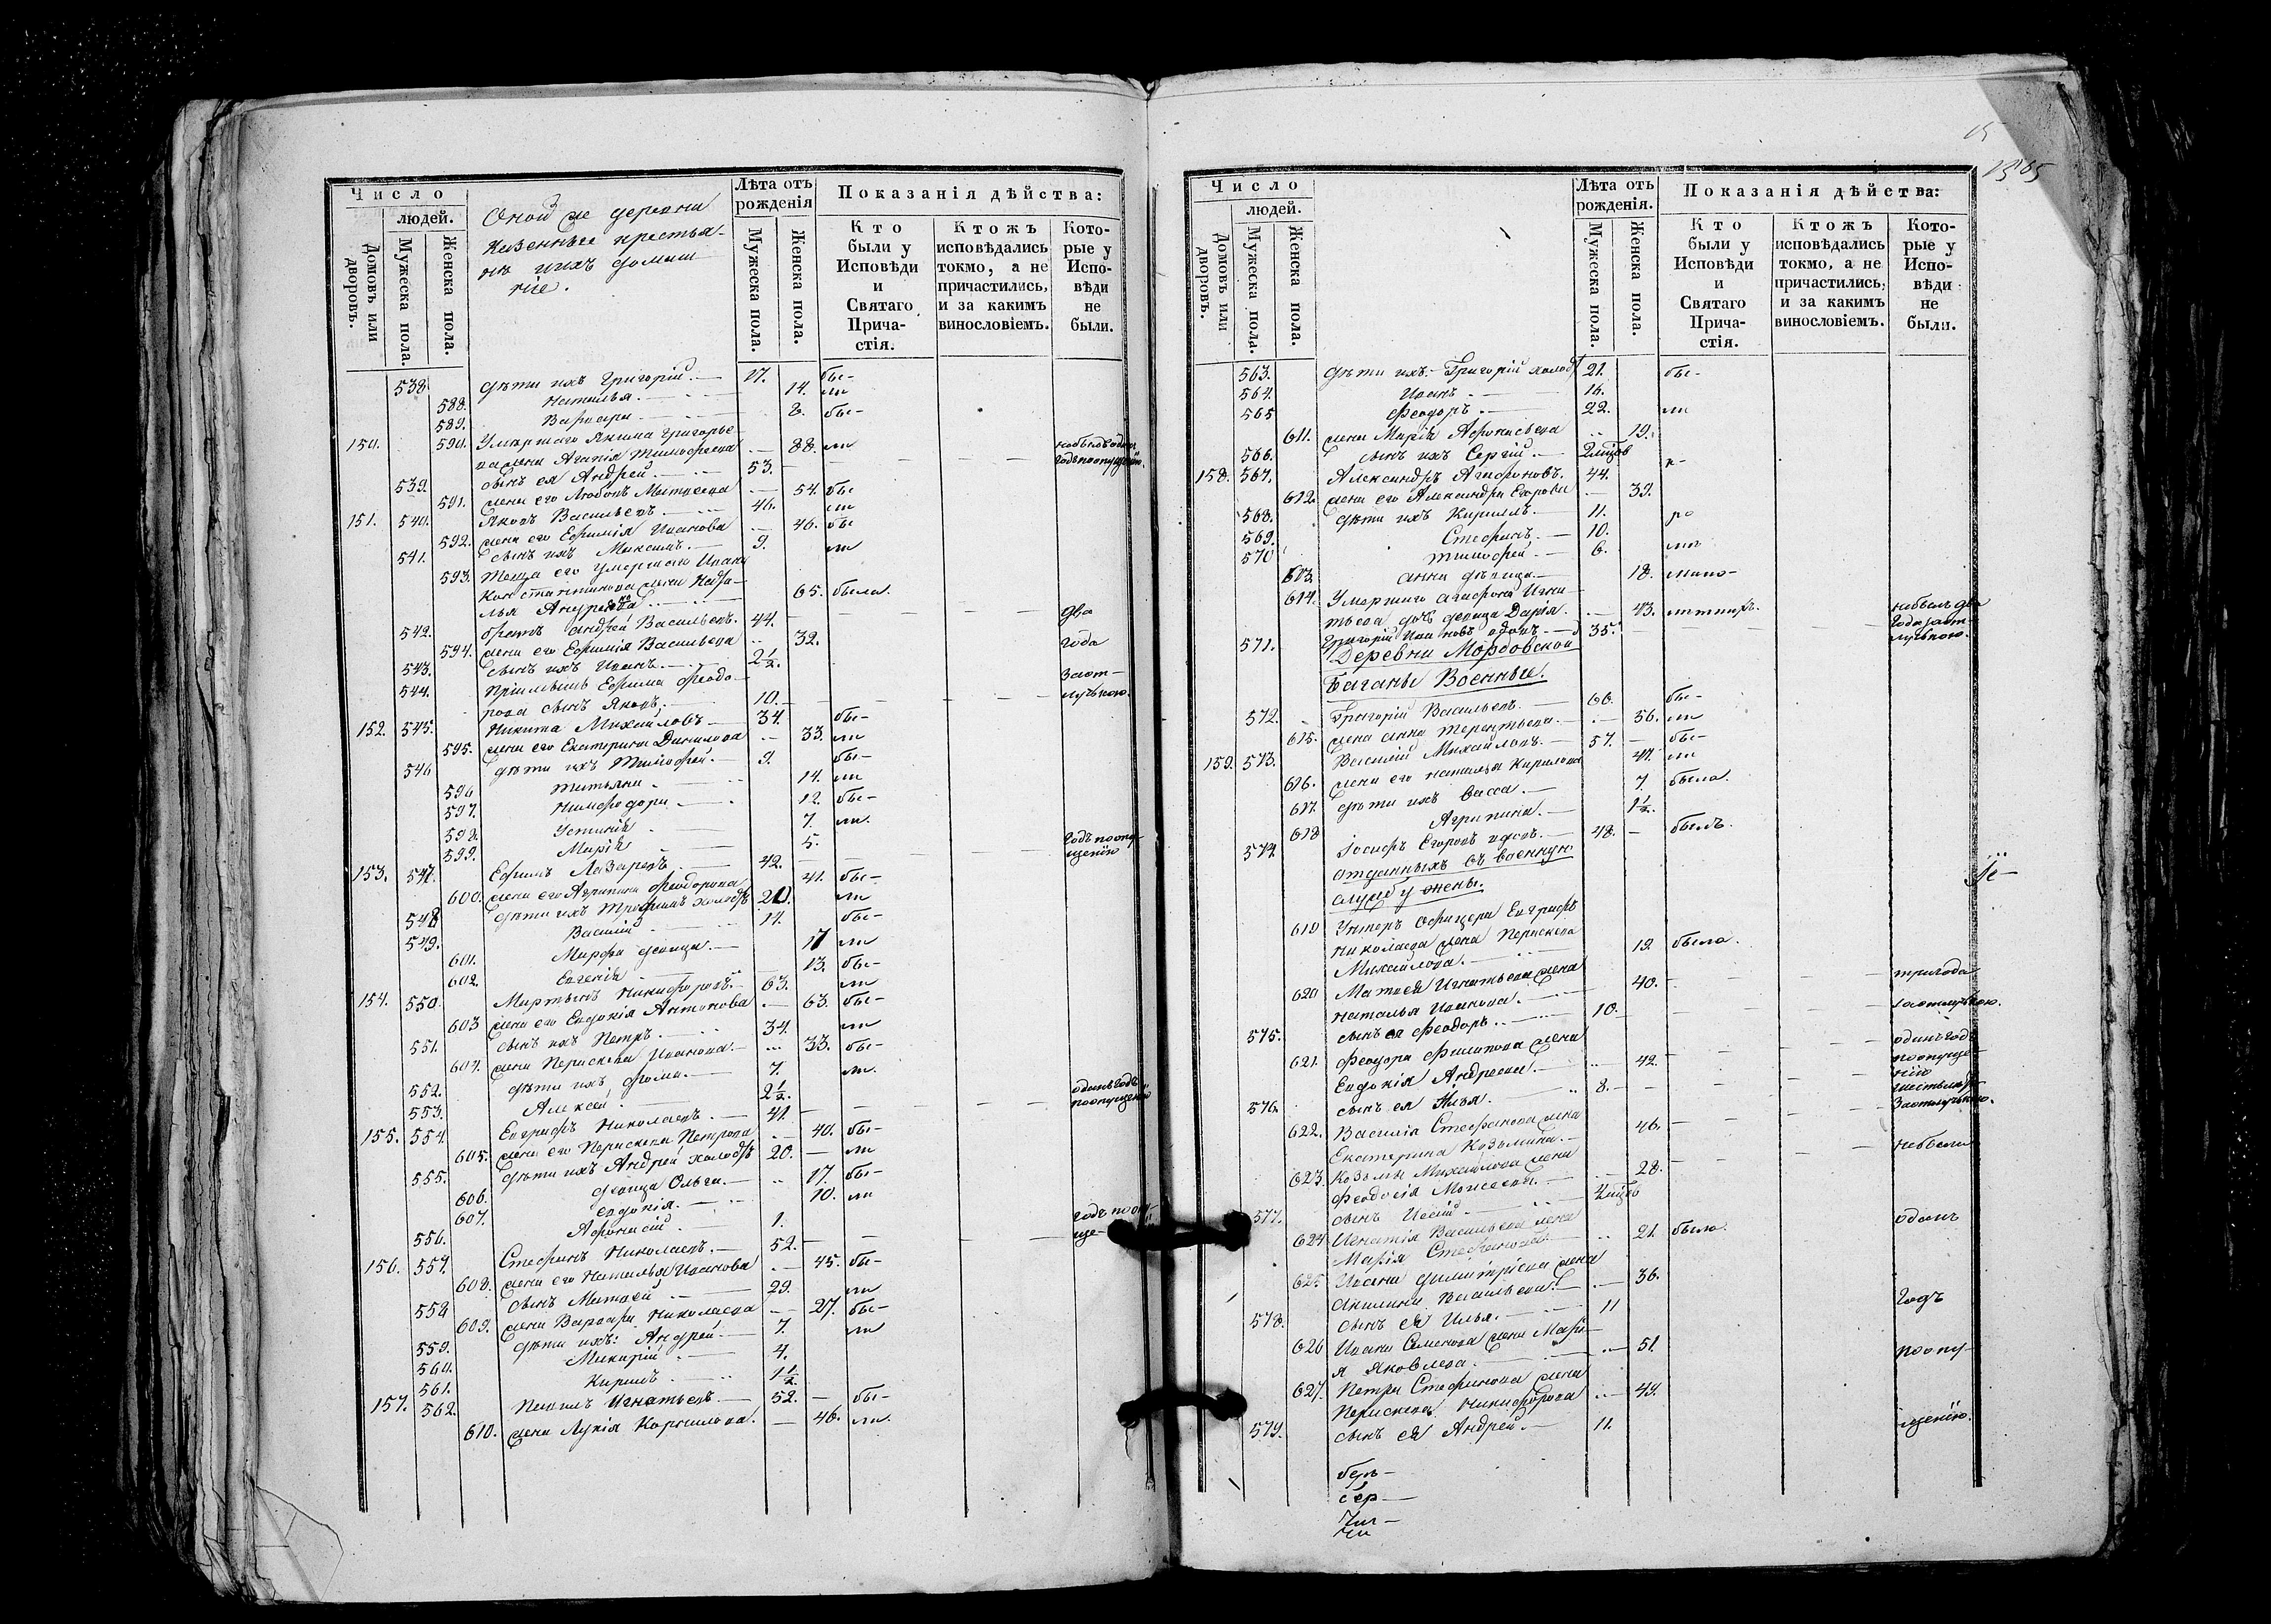 Число
людей.
Домовъ или дворовъ.
Мужеска пола.
Женска пола.
Оной же деревни
казенные крестья-
не и ихъ домаш-
ніе.
Лѣта отъ рожденія
Мужеска пола.
Женска пола.
Показанія дѣйства:
Кто были у Исповѣди и Святаго Прича-стія.
Ктожъ исповѣдались токмо, а не причастились, и за какимъ винословіемъ.
Кото-рые у Испо-вѣди не были.
538. дѣти ихъ Григорій. 17. бы-
588. Наталья. 14. ли
589. Варвара 8. бы-
150. 590. Умершаго Якима Григорье-
ва жена Агапія Тимофеева 88. ли
539. сынъ ея Андрей 53. годъ по опущенію.
591. жена его Любовь Матвеева 54. бы
151. 540. Яковъ Васильевъ. 46. ли
592. жена его Ефимія Иванова 46. бы
541. Сынъ ихъ Максимъ. 9. ли
593. Теща его умершаго Ивана
Константинова жена Ната-
лья Андреева 65. была.
542. братъ Андрей Васильевъ. 44. два
594. жена его Ефимія Васильева 32. года
543. Сынъ ихъ Иванъ. 2½. заот-
544. Пріимышъ Ефима Феодо-
рова сынъ Яковъ. 10. лучкою.
152. 545. Никита Михайловъ 34. бы-
595. жена его Екатерина Данилова 33. ли
546 дѣти ихъ Тимофей. 9. бы-
596 Татьяна 14. ли
597. Нимфодора 12. бы-
598. Устинія 7. ли.
599. Марія 5.
153. 547. Ефимъ Лазаревъ 42. годъ по опу-
щенію
600. жена его Агрипина Феодорова 41. бы-
548 дѣти ихъ Трофимъ холостъ 20. ли
549. Василій 14. бы-
601. Марфа девица. 17 ли
602. Евгенія 13. бы-
154. 550. Мартынъ Никифоровъ. 63. ли
603 жена его Евдокія Антонова 63. бы-
551. сынъ ихъ Петръ. 34. ли
604. жена Параскева Иванова. 33. бы-
552. дѣти ихъ, Фома. 7. ли.
553. Алексей 2½.
155. 554. Евграфъ Николаевъ. 41 одинъ годъ
по опущенію
605. жена его Параскева Петрова 40. бы-
555. дѣти ихъ Андрей холостъ 20. ли
606. девица Ольга. 17. бы-
607. Евдокія. 10. ли
556. Афонасій 1.
156. 557. Стефанъ Николаевъ. 52. годъ по опу-
ще-
608. жена его Наталья Иванова 45. бы-
558 сынъ Матвей 29. ли
609. жена Варвара Николаева 27. бы-
559. дѣти ихъ: Андрей. 7. ли
560. Макарій 4.
561. Кирилъ 1½.
157. 562. Павилъ Игнатьевъ 52. бы-
610. жена Лукія Корнилова. 46. ли.
Число
людей.
Домовъ или дворовъ.
Мужеска пола.
Женска пола.
Лѣта отъ рожденія.
Мужеска пола.
Женска пола.
Показанія дѣйства:
Кто были у Исповѣди и Святаго Прича-стія.
Ктожъ исповѣдались токмо, а не причастились, и за какимъ винословіемъ.
Кото-рые у Испо-вѣди не были.
563. дѣти ихъ: Григорій холостъ 21. бы-
564. Иванъ 16.
565 Феодоръ 22. ли
611. жена Марія Афонасьева 19.
566. Сынъ ихъ Сергій.
158. 567. Александръ Агафоновъ. 44.
612. жена его Александра Егорова 39.
568. дѣти ихъ Кирилъ. 11.
569. Стефанъ. 10.
570 Тимофей. 6.
613. Анна девица. 18.
614. Умершаго Агафона Игна-
тьева дочь девица Дарія. 43. небылъ два
571. Григорій Ивановъ вдовъ. 35. года заот-
лучкою.
Деревни Мордовской
Баганы Военные.
572. Григорій Васильевъ. 66. бы-
615. жена Анна Терентьева. 56. ли
159. 573. Василій Михайловъ. 57. бы-
616. жена его Наталья Кирилова 41. ли
617. дѣти ихъ Васса 7. была
618 Агрипина 1½.
574. Іосифъ Егоровъ вдовъ. 48. былъ.
отданныхъ въ военную
службу жены.
619 Унтеръ Офицера Евграфа
Николаева жена Параскева
Михайлова. 19. была.
620 Матвея Игнатьева жена
Наталья Иванова. 40. три года
575. сынъ ея Феодоръ 10. заотлучкою.
621. Феодора Филипова жена
Евдокія Андреева. 42. одинъ годъ
по опуще-
нію
576. сынъ ея Илья. 8.
622. Василія Стефанова жена
Екатерина Козьмина. 46. заотлучкою.
623. Козьмы Михайлова жена
Феодосія Моисеева. 28. небыла
577. сынъ
624 Игнатія Васильева жена
Марія Стефанова. 21. была. одинъ
625. Ивана Димитріева жена
Акилина Васильева. 36. годъ
578. сынъ ея Илья. 11
626 Ивана Семенова жена Марі-
я Яковлева. 51. по опу-
627. Петра Стефанова жена
Параскева Никифорова 49.
579. сынъ ея Андрей. 11. щенію.